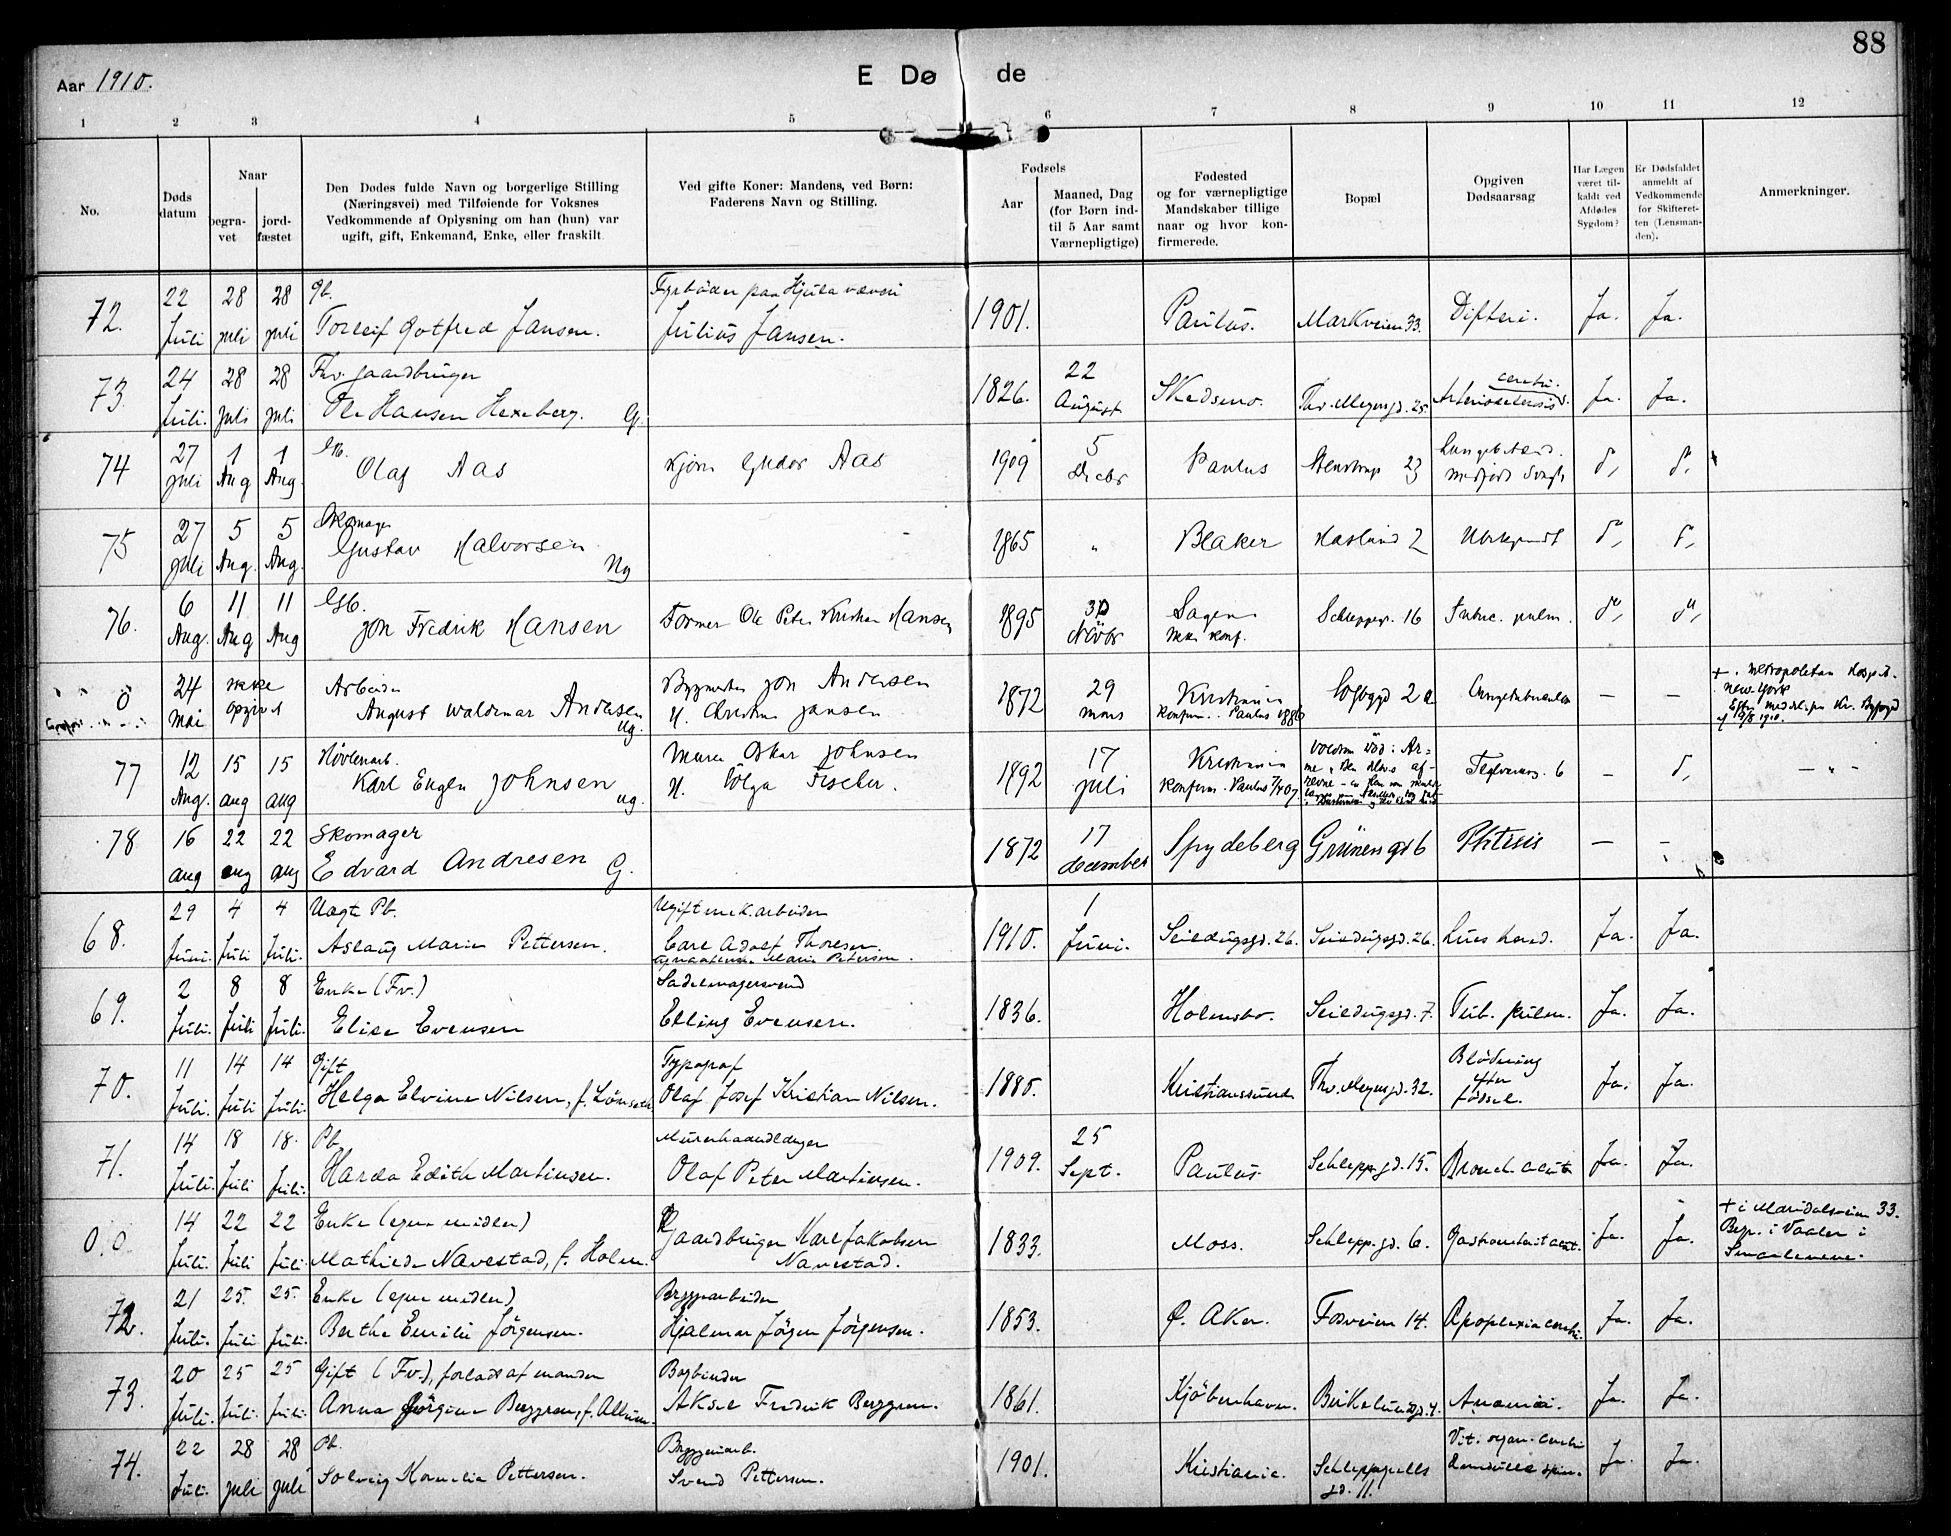 88
Aar 1910.
E Dø de
1 2 3 4 5 6 7 8 9 10 11 12
No.
Døds datum
Naar
begra-vet
jord-fæstet
Den Dødes fulde Navn og borgerlige Stilling
(Næringsvei) med Tilføiende for Voksnes
Vedkommende af Oplysning om han (hun) var
ugift, gift, Enkemand, Enke, eller fraskilt
Ved gifte Koner: Mandens, ved Børn:
Faderens Navn og Stilling.
Fødsels
Aar
Maaned, Dag
(for Børn ind-
til 5 Aar samt
Værnepligtige)
Fødested
og for værnepligtige
Mandskaber tillige
naar og hvor kon-
firmerede.
Bopæl
Opgiven
Dødsaarsag.
Har Lægen
været til-
kaldt ved
Afdødes
Sygdom?
Er Dødsfaldet
anmeldt af
Vedkommende
for Skifteret-
ten (Lensman-
den).
Anmerkninger.
22 28 28 gb. Fyrbøder paa Hjula væveri
72. Juli juli juli Torleif Gotfred Jansen. Julius Jansen. 1901. Paulus. Markveien 33. Difteri. Ja. Ja.
24 28 28 Fhv. gaardbruger 22 cerebri.
73. Juli. juli juli Ole Hansen Hexeberg. G. 1826. August Skedsmo. Thv. Meyersgd. 25. Arteriosclerosis Ja. Ja.
27 1 1 5
74 juli Aug Aug. Olaf Aas Aas 1909 Decbr Paulus 23
27 5 5 Skomager
75 juli Aug. Aug. Gustav Halvorsen Ug 1865 " Blaker 2
6 11 11 Gb. Sagene
76. Aug. Aug Aug Jon Fredrik Hansen Former Ole Peter Kristian Hansen 1895 Novbr Ikke konf. Schleppegr. 16 Tuberc. pulm.
24 ikke Arbeider Jon Andersen 29 Kristiania + i Metropolitan Hospit.
0 Mai opgivet August Waldemar Andersen Ug. H. Christine Jansen 1872 mars konfirm. Paulus 1886 2 a — — New-York
12 15 15 Høvlerarb. Murer Oskar Johnsen 17 Kristiania
77 Aug. aug aug Karl Eugen Johnsen ug. H. Fischer. 1892 juli konfirm. Paulus 7/4 07 Teglverksg. 6 — — " —
16 22 22 Skomager 17
78 aug aug aug Edvard Andresen G. 1872 december Spydeberg Grünersgd 6 Phtisis — —
29 4 4 Uægte Pb. Ugift mek. arbeider 1
68. Juni. Juli Juli. Aslaug Marie Pettersen. Carl Adolf Thoresen. 1910. Juni. Seildugsgd. 26. Seildugsgd. 26. Lues hered. Ja. Ja.
Marie Petersen.
2 8 8 Enke (Fv.) Sadelmagersvend
69. Juli. Juli Juli. Elise Evensen Elling Evensen. 1836. Holmsbo. Seildugsgd. 7. Tub. pulm. Ja. Ja.
11 14 14 Gift Typograf Blødning
70. Juli. Juli Juli. Helga Elvine Nilsen, f. Olaf Josef Kristian Nilsen. 1880. Kristianssund Thv. Meyersgd. 32. efter fødsel. Ja. Ja.
14 18 18. Pb. Murerhaandlanger 25
71. Juli. Juli Juli. Harda Edith Martinsen. Olaf Peter Martinsen. 1909. Sept. Paulus. Schleppgd. 15. Bronch acut Ja. Ja.
14 22 22 Enke (egne midler) Gaardbruger Karl Jakobsen + i Maridalsveien 33.
0.0. Juli. Juli Juli Mathilde Navestad, f. Holm. Navestad. 1833. Moss. Schlepp.gd. 6. Gastroenterit acut. Ja. Ja. Begr. i Vaaler i
Smaalenene.
21 25. 25. Enke (egne midler) Bryggearbeider
72. Juli. Juli Juli. Berthe Emilie Jørgensen. Hjalmar Jørgen Jørgensen. 1853. Ø. Aker. Fosveien 14. Apoplexia cerebri. Ja. Ja.
20 25 25 Gift (Fv.), forladt af manden Bogbinder
73. Juli. Juli. Juli. Anna Jørgine Berggren, f. Aksel Fredrik Berggren. 1861. Kjøbenhavn. Birkelundsgd. 4. Anæmi. Ja. Ja.
22 28 28 Pb. Bryggeriarb. Vit. organ. cordis
74. Juli. juli juli Solveig Kornelia Pettersen. Svend Pettersen. 1901. Kristiania. Schleppegrells gd. 11. Ja. Ja.